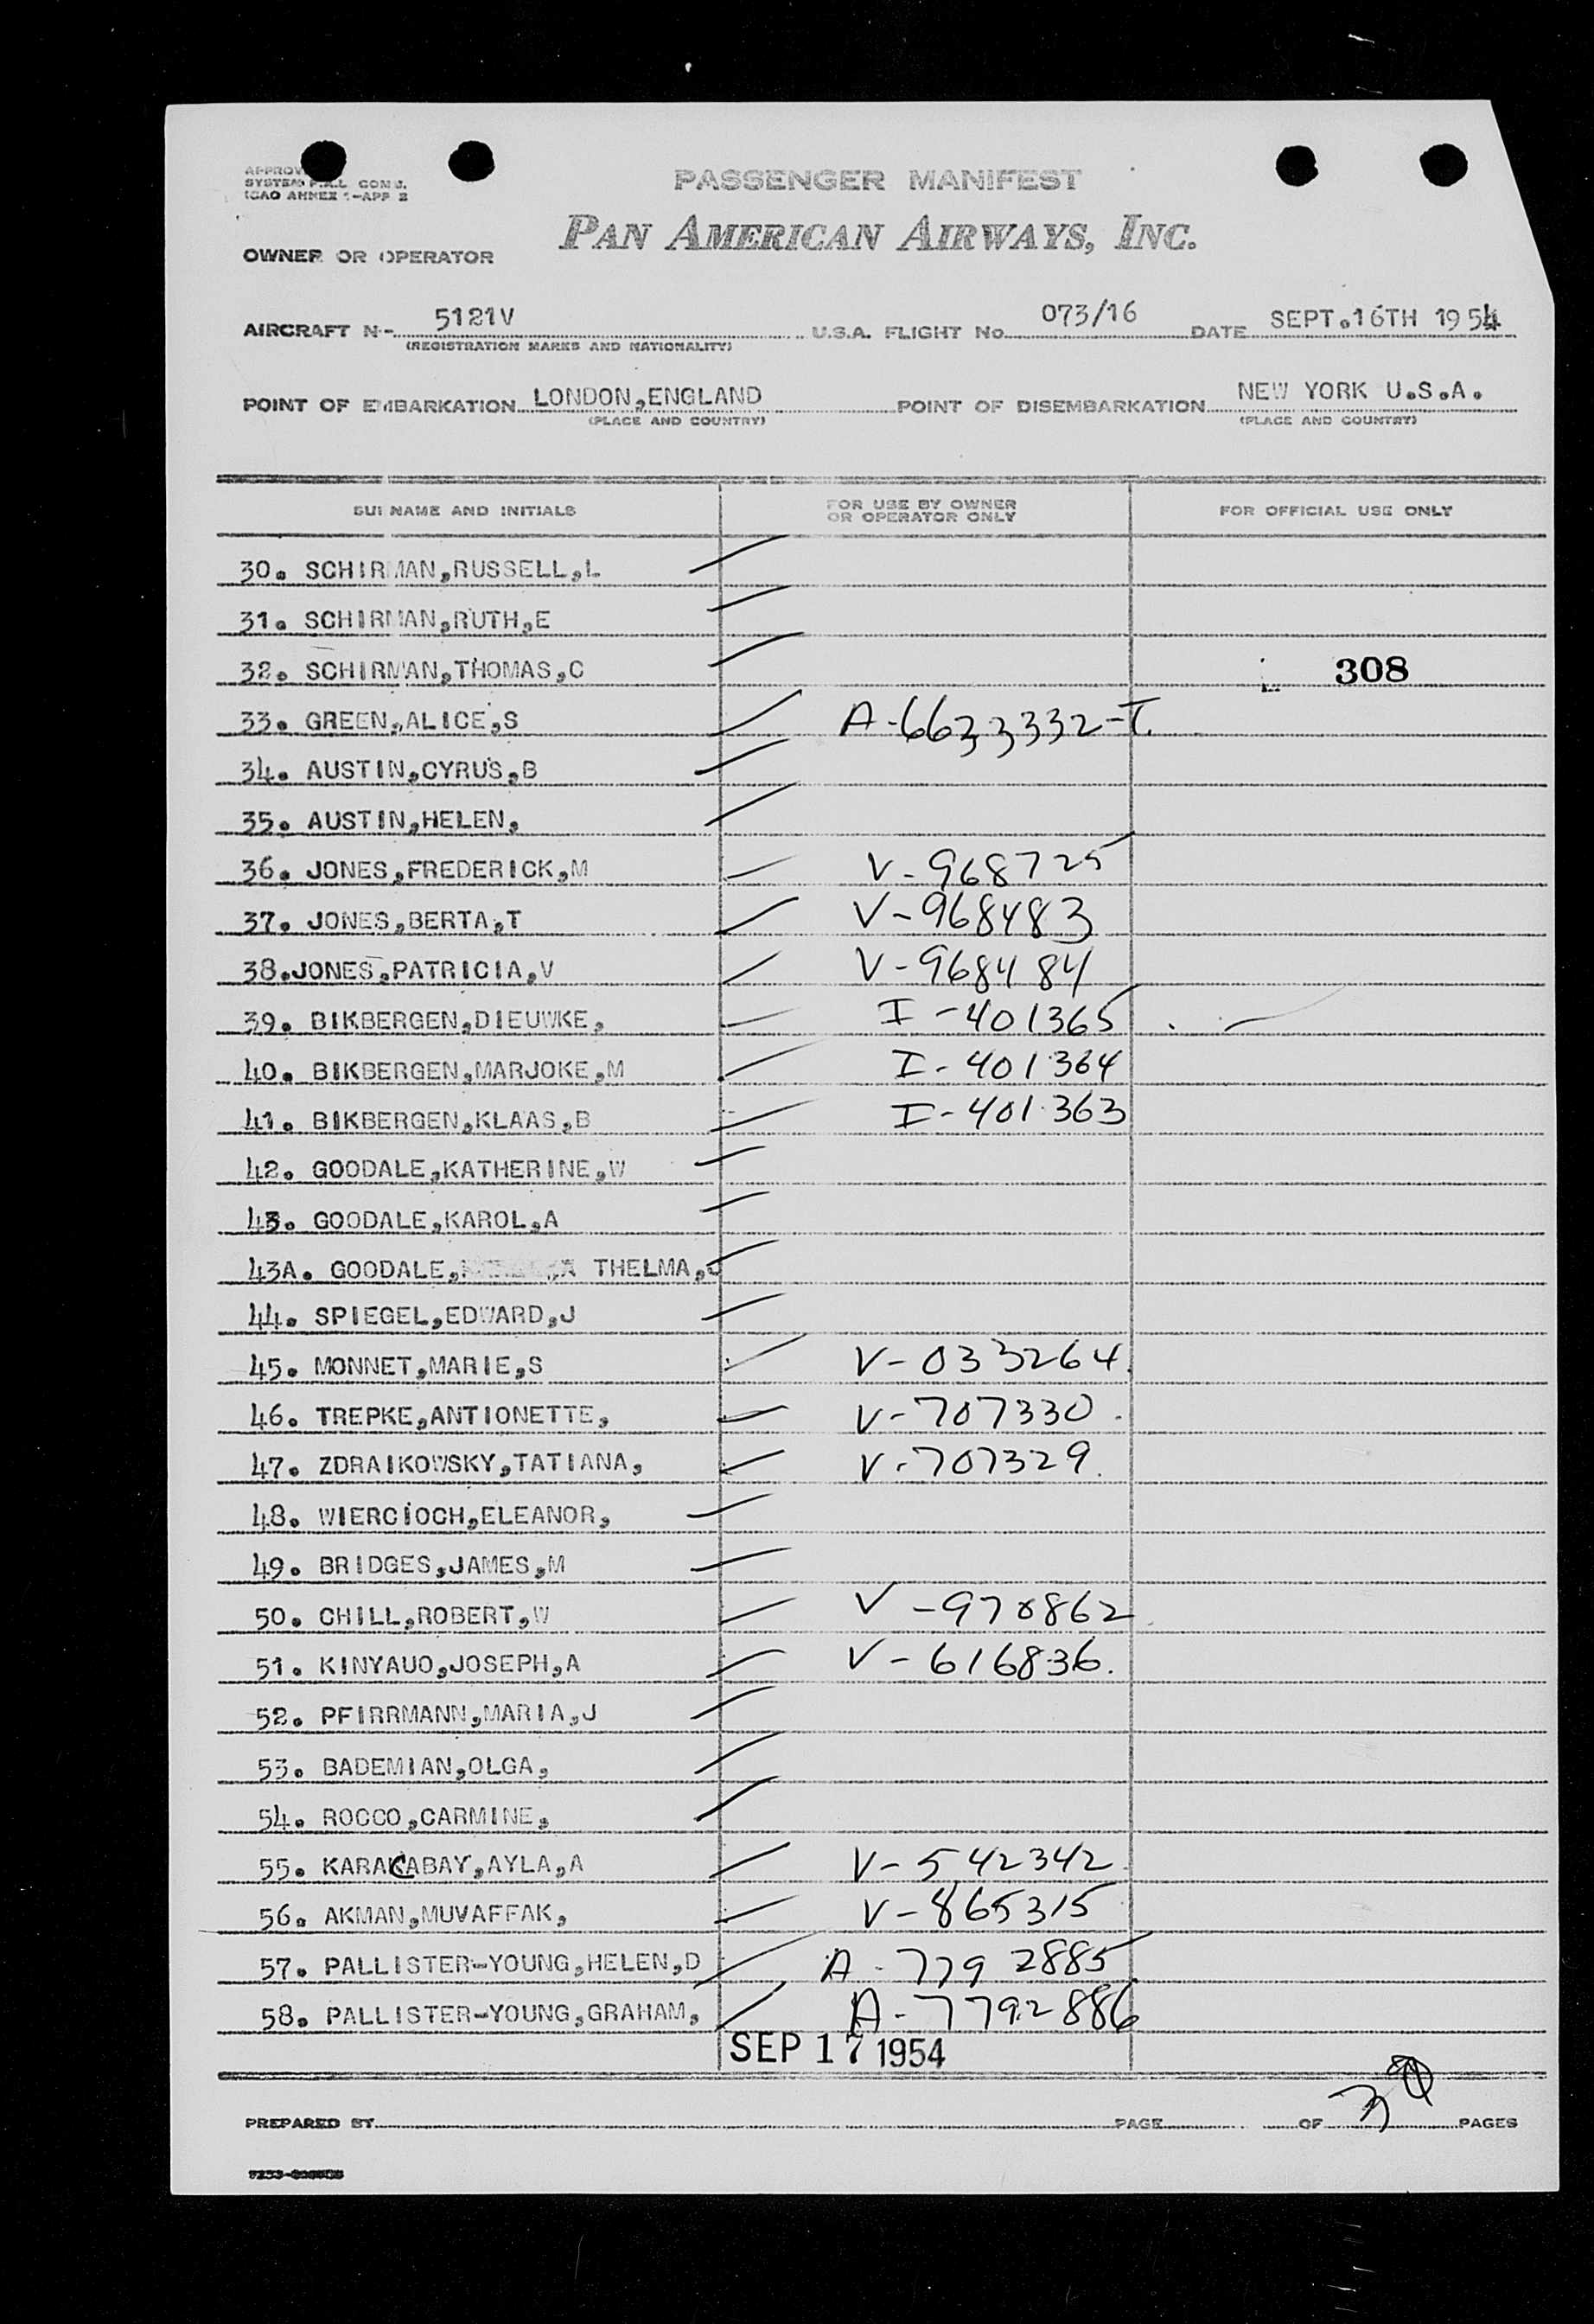 PASSENGER MANIFEST
SYSTEM P.A.L. COMM.
ICAO ANNEX -APP 2
PAN AMERICAN AIRWAYS, INC.
OWNER OR OPERATOR
AIRCRAFT N- 5121V U.S.A. FLIGHT No. 073/16 DATE SEPT.16TH 1954
(REGISTRATION MARKS AND NATIONALITY)
POINT OF EMBARKATION LONDON,ENGLAND POINT OF DISEMBARKATION NEW YORK U.S.A.
(PLACE AND COUNTRY) (PLACE AND COUNTRY)
SURNAME AND INITIALS FOR USE BY OWNER OR OPERATOR ONLY FOR OFFICIAL USE ONLY
30. SCHIRMAN,RUSSELL,L
31. SCHIRMAN,RUTH,E
32. SCHIRMAN,THOMAS,C 308
33. GREEN,ALICE,S A-6633332-T.
34. AUSTIN,CYRUS,B
35. AUSTIN,HELEN,
36. JONES,FREDERICK,M V-968725
37. JONES,BERTA,T V-968483
38.JONES,PATRICIA,V V-968484
39. BIKBERGEN,DIEUWKE, I-401365
40. BIKBERGEN,MARJOKE,M I-401364
41. BIKBERGEN,KLAAS,B I-401363
42. GOODALE,KATHERINE,W
43. GOODALE,KAROL,A
43A. GOODALE, THELMA,J
44. SPIEGEL,EDWARD,J
45. MONNET,MARIE,S V-033264
46. TREPKE,ANTIONETTE, V-707330
47. ZDRAIKOWSKY,TATIANA, V-707329.
48. WIERCIOCH,ELEANOR,
49. BRIDGES,JAMES,M
50. CHILL,ROBERT,W V-970862
51. KINYAUO,JOSEPH,A V-616836.
52. PFIRRMANN,MARIA,J
53. BADEMIAN,OLGA,
54. ROCCO,CARMINE,
55. KARACABAY,AYLA,A V-542342
56. AKMAN,MUVAFFAK, V-865315
57. PALLISTER-YOUNG,HELEN,D A-7792885
58. PALLISTER-YOUNG,GRAHAM, A-7792886
SEP 17 1954
PREPARED BY PAGE OF 3 PAGES